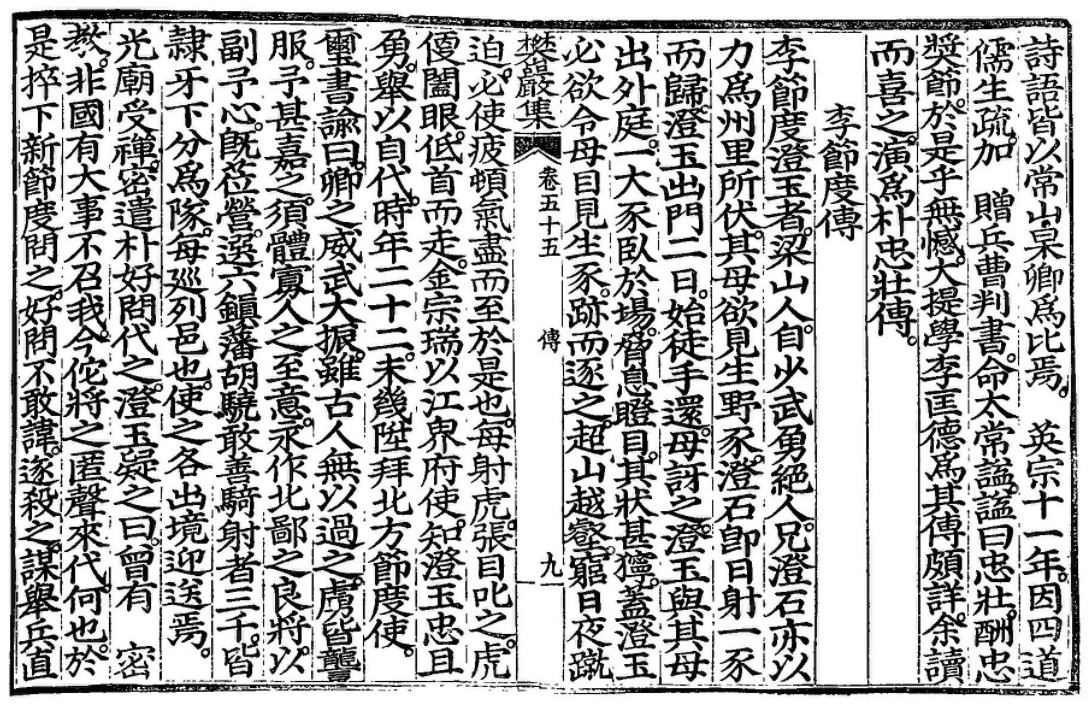 詩語皆以常山杲卿爲比焉。 英宗十一年。因四道
儒生疏。加 贈兵曹判書。命太常謚。謚曰忠壯。酬忠
奬節。於是乎無憾。大提學李匡德爲其傳頗詳。余讀
而喜之。演爲朴忠壯傳。
李節度傳
李節度澄玉者。梁山人。自少武勇絶人。兄澄石亦以
力爲州里所伏。其母欲見生野豕。澄石卽日射一豕
而歸。澄玉出門二日。始徒手還。母訝之。澄玉與其母
出外庭。一大豕臥於場。脅息瞪目。其狀甚獰。蓋澄玉
必欲令母目見生豕。跡而逐之。超山越壑。窮日夜蹴
樊巖集 卷五十五 傳 九
迫。必使疲頓氣盡而至於是也。每射虎。張目叱之。虎
便闔眼。低首而走。金宗瑞以江界府使。知澄玉忠且
勇。擧以自代。時年二十二。未幾陞拜北方節度使。
璽書諭曰。卿之威武大振。雖古人無以過之。虜皆讋
服。予甚嘉之。須體寡人之至意。永作北鄙之良將。以
副予心。旣莅營。選六鎭藩胡驍敢善騎射者三千。皆
隷牙下。分爲隊。每廵列邑也。使之各出境迎送焉。
光廟受禪。密遣朴好問代之。澄玉疑之曰。曾有 密
敎。非國有大事不召我。今佗將之匿聲來代。何也。於
是捽下新節度問之。好問不敢諱。遂殺之。謀擧兵直